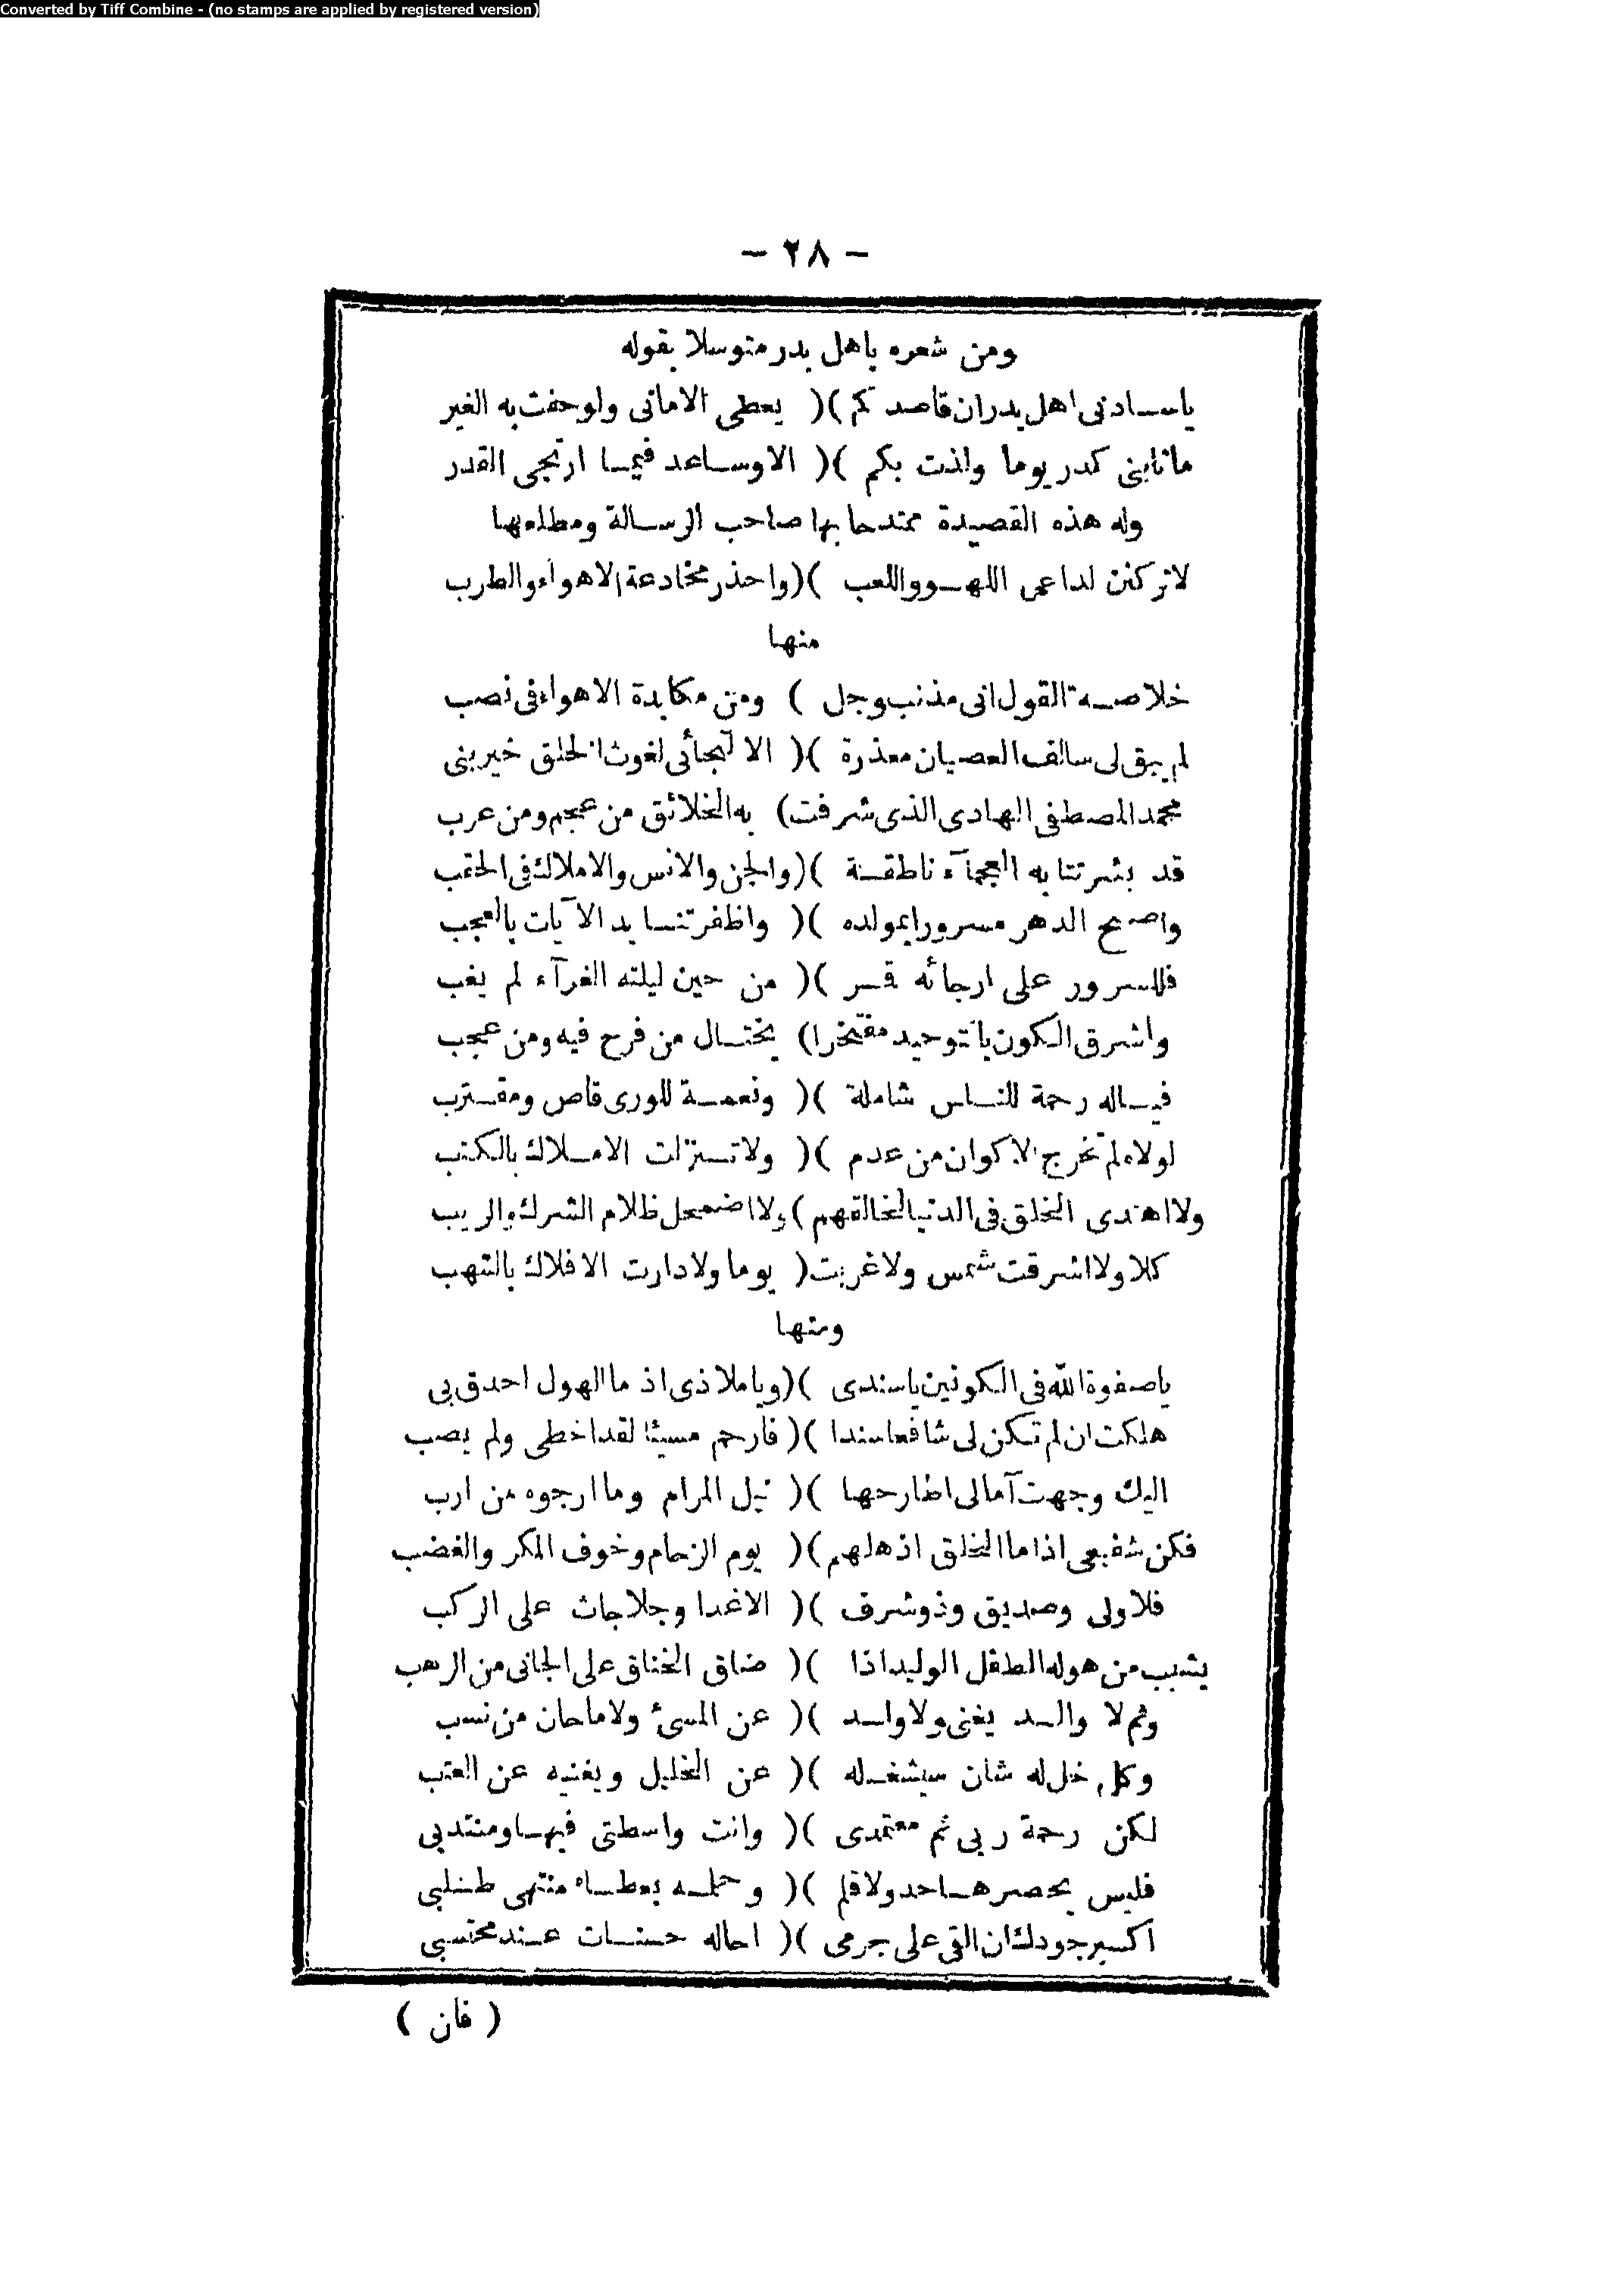 Converted by Tiff Combine - (no stamps are applied by registered version)
- ٢٨ -
ومن شعره باهل بدر متوسلا بقوله
ياسادتى اهل بدران قاصدكم )( يعطى الامانى ولوحفت به الغير
مانابنى كدر يوما ولذت بكم )( الاوساعد فيما ارتجى القدر
وله هذه القصيدة ممتدحا بها صاحب الرسالة ومطلعها
لاتركنن لداعى اللهو واللعب )( واحذر مخادعة الاهواء والطرب
منها
خلاصة القول انى مذنب وجل ) ومن مكابدة الاهواء فى نصب
لم يبق لى سالف العصيان معذرة )( الا التجائى لغوث الخلق خير بنى
محمد المصطفى الهادى الذى شرفت ) به الخلائق من عجم ومن عرب
قد بشرتنا به العجمآء ناطقة )( والجن والانس والاملاك فى الحقب
واصبح الدهر مسرورا بمولده )( واظفرتنا يد الآيات بالعجب
فللسرور على ارجائه قسر )( من حين ليلته الغرآء لم يغب
واشرق الكون بالتوحيد مفتخرا ) يختال من فرح فيه ومن عجب
فياله رحمة للناس شاملة )( ونعمة للورى قاص ومقترب
لولاه لم تخرج الاكوان من عدم )( ولا تنزلت الاملاك بالكتب
ولا اهتدى الخلق فى الدنيا لخالقهم ) ولا اضمحل ظلام الشرك والريب
كلا ولا اشرقت شمس ولا غربت ( يوما ولا دارت الافلاك بالشهب
ومنها
ياصفوة الله فى الكونين ياسندى )( وياملاذى اذ ما الهول احدق بى
هلكت ان لم تكن لى شافعا سندا )( فارحم مسيئا لقد اخطى ولم يصب
اليك وجهت آمالى اطارحها )( نيل المرام وما ارجوه من ارب
فكن شفيعى اذا ما الخلق اذهلهم )( يوم الزحام وخوف المكر والغضب
فلا ولى وصديق وذو شرف )( الاغدا وجلا جاث على الركب
يشيب من هوله الطفل الوليد اذا )( ضاق الخناق على الجانى من الرهب
وثم لا والد يغنى ولا ولد )( عن المسئ ولا ماحان من نسب
وكل خل له شان سيشغله )( عن الخليل ويغنيه عن العتب
لكن رحمة ربى ثم معتمدى )( وانت واسطتى فيها ومنتدبى
فليس يحصرها حد ولا قلم )( وحمله بعطاه منتهى طلبى
اكسير جودك ان القى على جرمى )( احاله حسنات عند محتسبى
( فان )